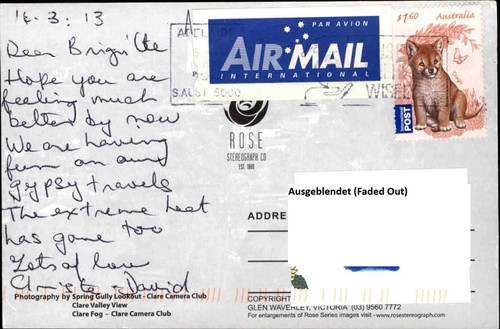 14.3:13
Dear Brigitte
Hope you are
feeling much
better by now
We are having
fun on our
gypsy travels
The extreme heat
has gone too
Lots of love
David
Photography by Spring Gully Lookout - Clare Camera Club
Clare Valley View
Clare Fog - Clare Camera Club
ADELAIDE
S.AUST 5000
PAR AVION
AIR MAIL
INTERNATIONAL
WISELY
$1.60 Australia
International
POST
ROSE
STEREOGRAPH CO
EST. 1880
ADDRE
Ausgeblendet (Faded Out)
COPYRIGHT
GLEN WAVERLEY, VICTORIA (03) 9560 7772
For enlargements of Rose Series images visit - www.rosestereograph.com